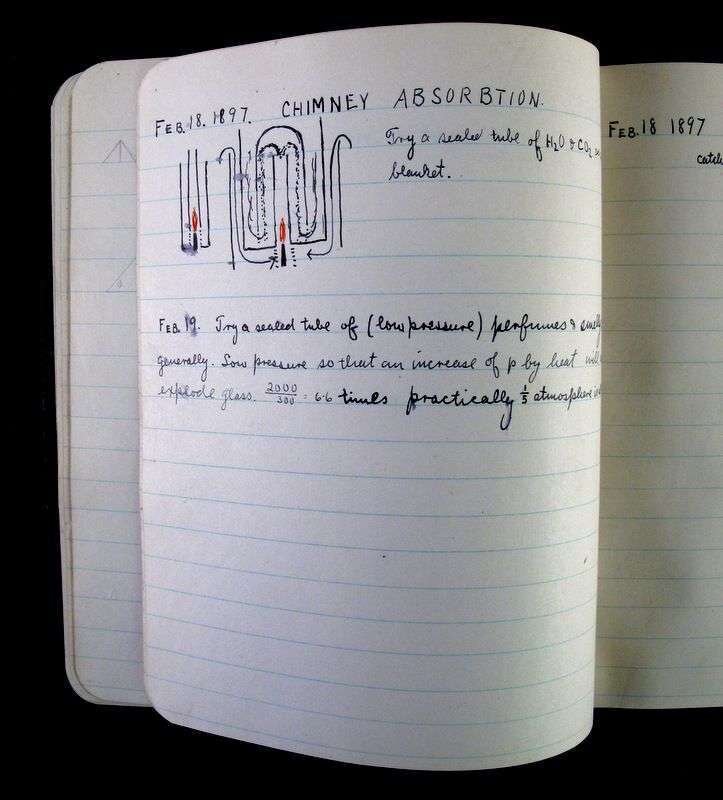 FEB. 18. 1897. CHIMNEY ABSORBTION.
Try a sealed tube of H2O & CO2
blanket.
FEB. 19. Try a sealed tube of (low pressure) perfumes &
generally. Low pressure so that an increase of p by heat
explode glass. 2000/300 = 6.6 times practically 1/5 atmosphere
FEB. 18 1897